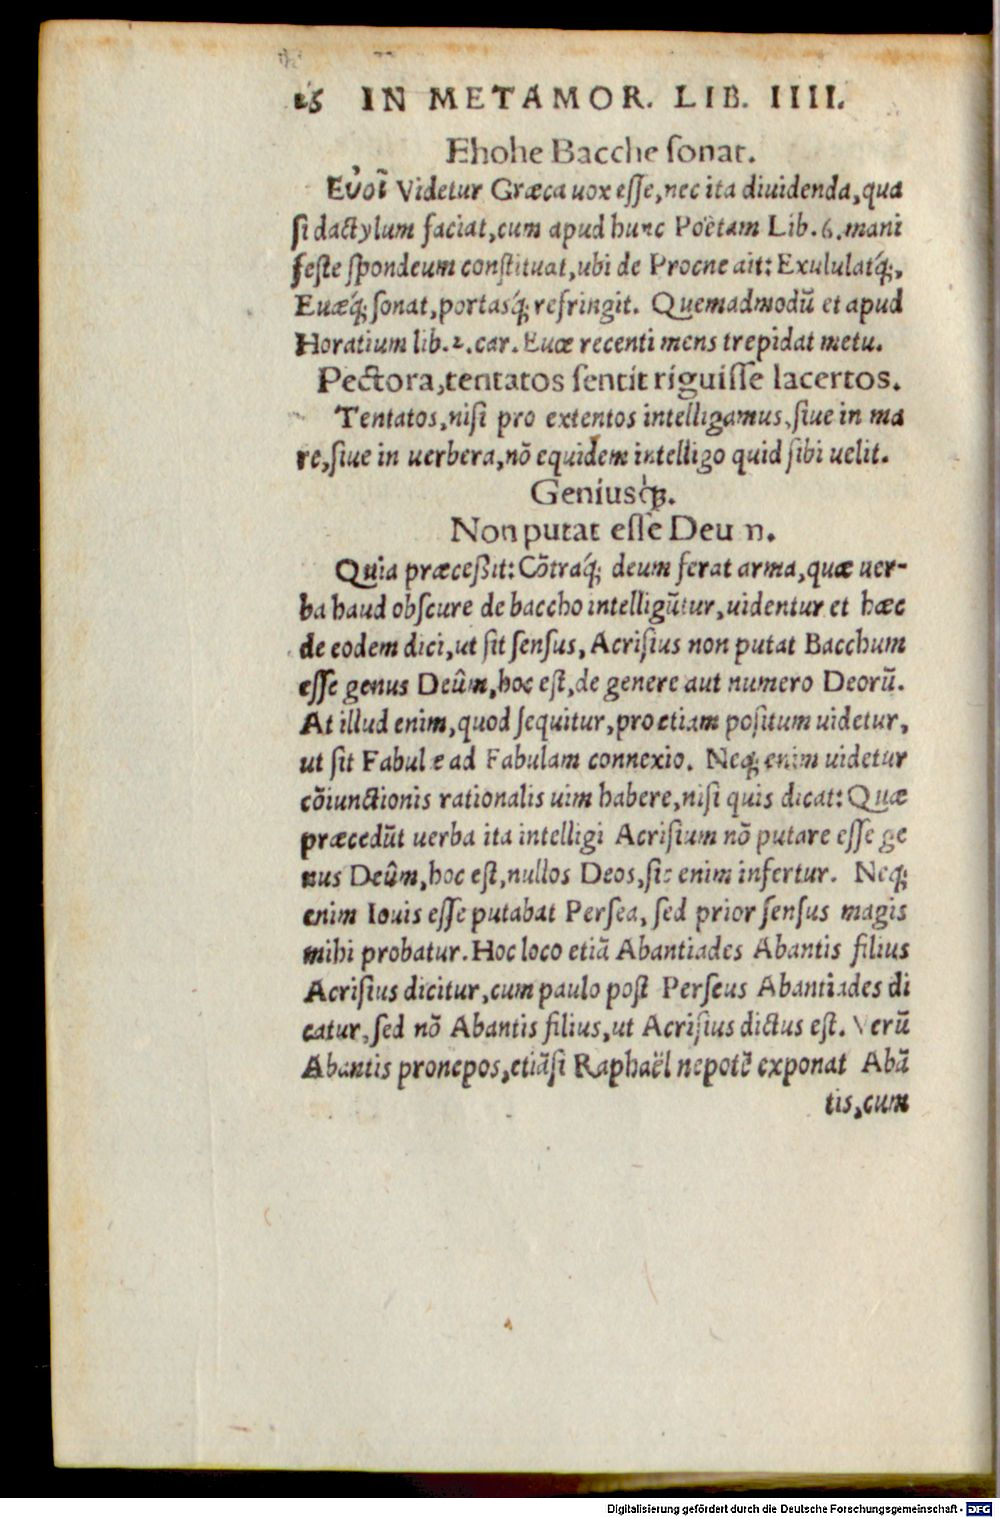 26 IN METAMOR. LIB. IIII.
Ehohe Bacche ſonat.
Εὐοῖ Videtur Græca uox eſſe, nec ita diuidenda, qua
ſi dactylum faciat, cum apud hunc Poëtam Lib. 6. mani
feſte ſpondeum conſtituat, ubi de Procne ait: Exululatq́;,
Euæq́; ſonat, portasq́; refringit. Quemadmodū et apud
Horatium lib. 2. car. Euœ recenti mens trepidat metu.
Pectora, tentatos ſentit riguiſſe lacertos.
Tentatos, niſi pro extentos intelligamus, ſiue in ma
re, ſiue in uerbera, nō equidem intelligo quid ſibi uelit.
Geniusq́;.
Non putat eſſe Deu n.
Quia præceßit: Cōtraq́; deum ferat arma, quæ uer-
ba haud obſcure de baccho intelligūtur, uidentur et hæc
de eodem dici, ut ſit ſenſus, Acriſius non putat Bacchum
eſſe genus Deûm, hoc eſt, de genere aut numero Deorū.
At illud enim, quod ſequitur, pro etiam poſitum uidetur,
ut ſit Fabulæ ad Fabulam connexio. Neq; enim uidetur
cōiunctionis rationalis uim habere, niſi quis dicat: Quæ
præcedūt uerba ita intelligi Acriſium nō putare eſſe ge
nus Deûm, hoc eſt, nullos Deos, ſic enim infertur. Neq;
enim Iouis eſſe putabat Perſea, ſed prior ſenſus magis
mihi probatur. Hoc loco etiā Abantiades Abantis filius
Acriſius dicitur, cum paulo poſt Perſeus Abantiades di
catur, ſed nō Abantis filius, ut Acriſius dictus eſt. Verū
Abantis pronepos, etiāſi Raphaël nepotē exponat Abā
tis, cum
Digitalisierung gefördert durch die Deutsche Forschungsgemeinschaft - DFG